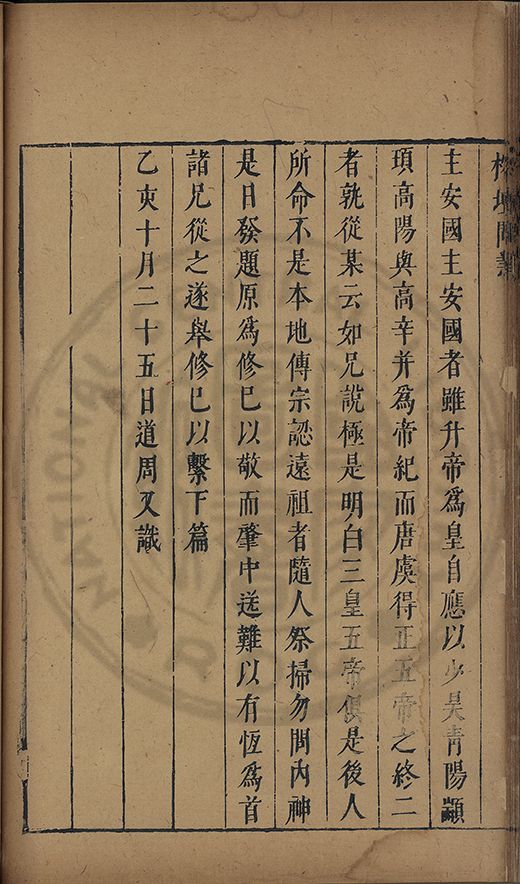 榕壇問業
主安國主安國者雖升帝為皇自應以少昊青陽顓
頊高陽與高辛并為帝紀而唐虞得正五帝之終二
者孰從某云如兄說極是明白三皇五帝俱是後人
所命不是本地傳宗認遠祖者隨人祭掃勿問內神
是日發題原為修已以敬而肇中送難以有恆為首
諸兄從之遂舉修已以繫下篇
乙亥十月二十五日道周又識